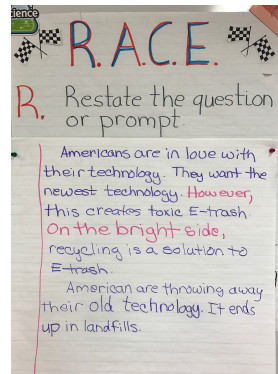 cience
R.A.C.E.
R. Restate the question
or prompt.
Americans are in love with
their technology. They want the
newest technology. However,
this creates toxic E-trash.
On the bright side,
recycling is a solution to
E-trash.
American are throwing away
their old technology. It ends
up in landfills.